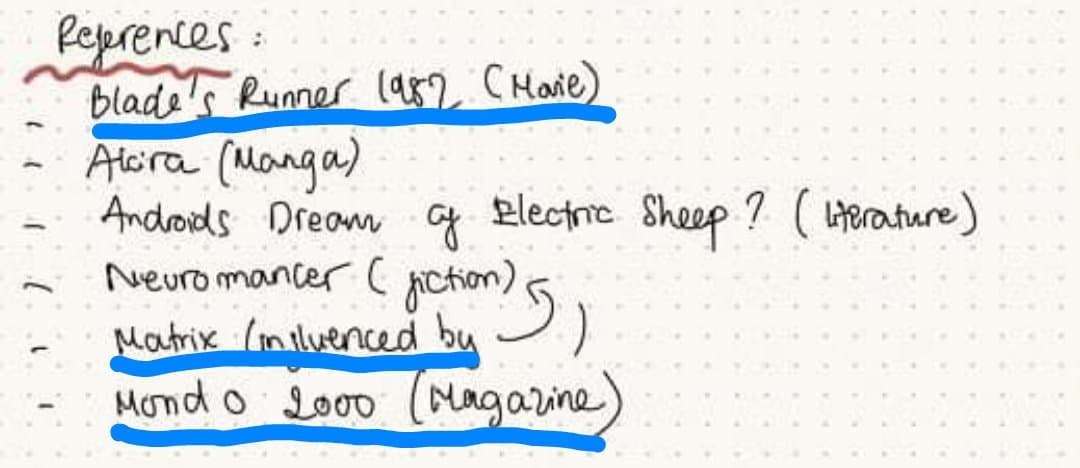 References :
- Blade's Runner 1982 (Movie)
- Akira (Manga)
- Androids Dream of Electric Sheep? (literature)
- Neuromancer (fiction)
- Matrix (influenced by )
- Mondo 2000 (Magazine)